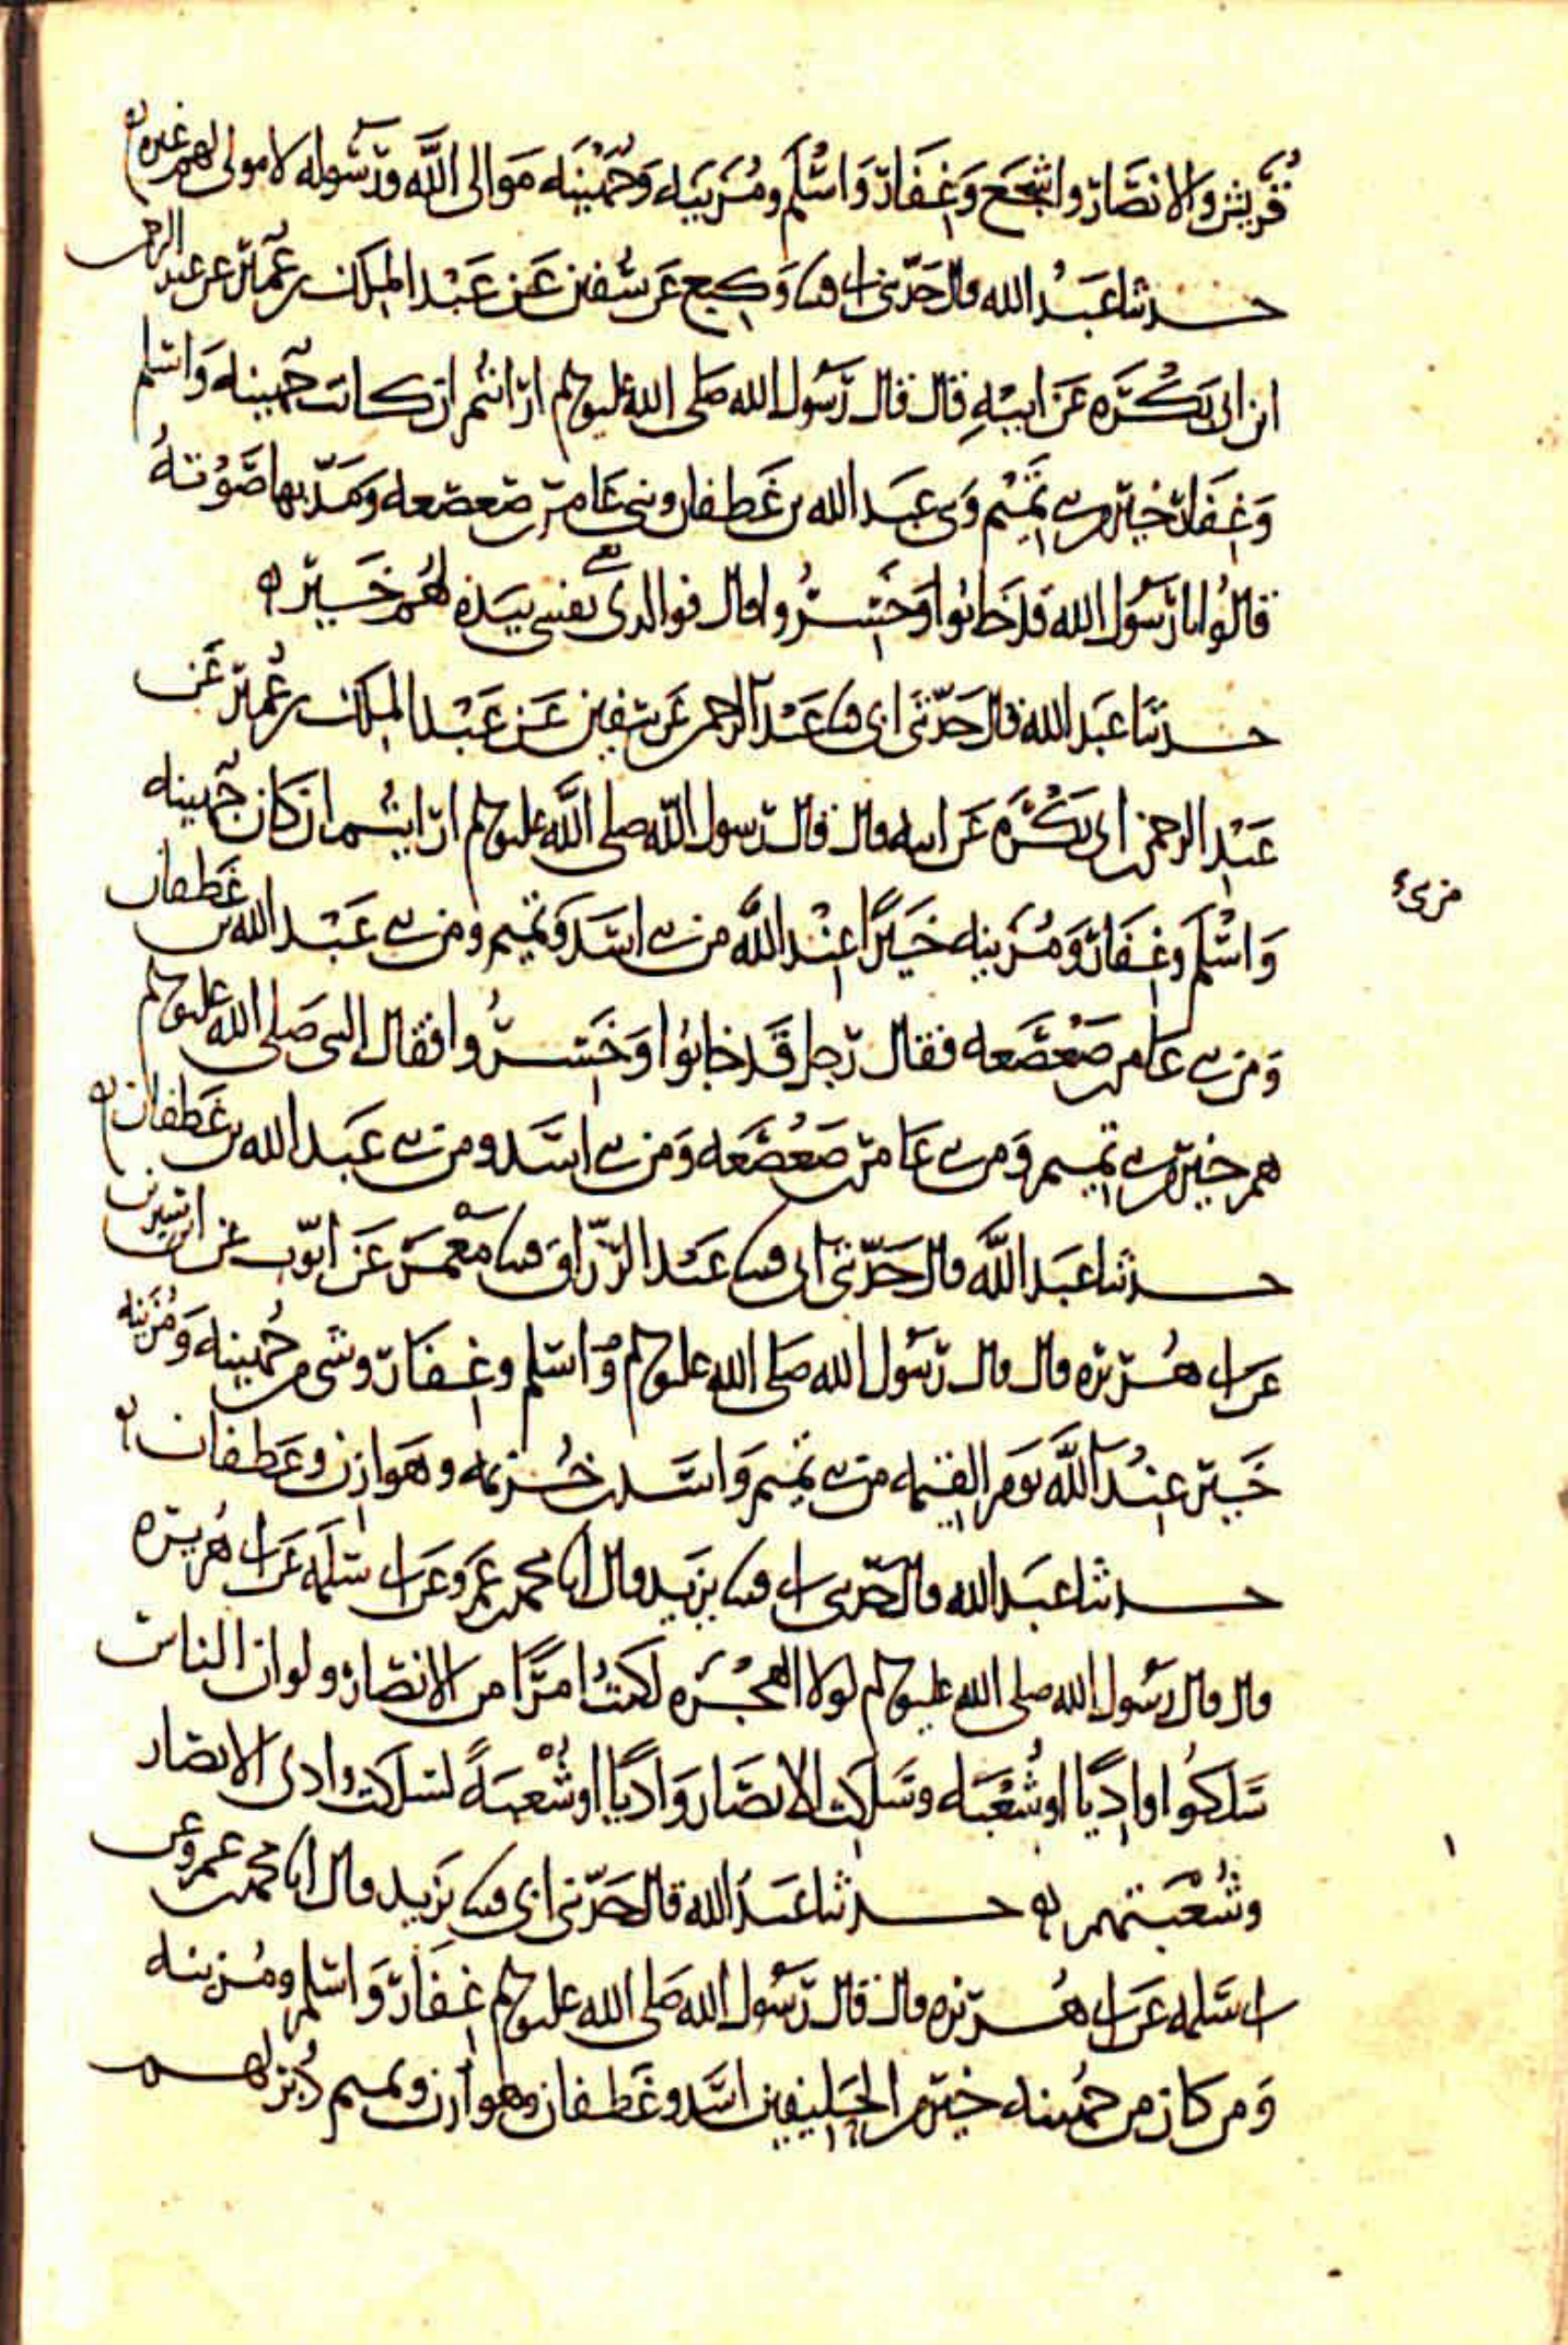 قريش والانصار واشجع وغفار واسلم ومزينه وجهينه موالى الله ورسوله لا مولى لهم غيره
حدثنا عبد الله قال حدثنى ابى قثنا وكيع عن سفين عن عبد الملك بن عمير عن عبد الرحمن
ابن ابى بكره عن ابيه قال قال رسول الله صلى الله عليه وسلم ارانتم ان كانت جهينه واسلم
وغفار خير من بنى تميم وبنى عبد الله بن غطفان وبنى عامر بن صعصعه ومد بها صوته
قالوا يا رسول الله قد خابوا وخسروا قال فوالذى نفسى بيده لهم خير
حدثنا عبد الله قال حدثنى ابى قثنا عبد الرحمن عن سفين عن عبد الملك بن عمير عن
عبد الرحمن بن ابى بكره عن ابيه قال قال رسول الله صلى الله عليه وسلم ارايتم ان كان جهينه
واسلم وغفار ومزينه خيرا عند الله من بنى اسد وتميم ومن بنى عبد الله بن غطفان
ومن بنى عامر بن صعصعه فقال رجل قد خابوا وخسروا فقال النبى صلى الله عليه وسلم
هم خير من بنى تميم ومن بنى عامر بن صعصعه ومن بنى اسد ومن بنى عبد الله بن غطفان
حدثنا عبد الله قال حدثنى ابى قثنا عبد الرزاق قثنا معمر عن ايوب عن ابن سيرين
عن ابى هريره قال قال رسول الله صلى الله عليه وسلم واسلم وغفار وشى من جهينه ومزينه
خير عند الله يوم القيمه من بنى تميم واسد بن خزيمه وهوازن وغطفان
حدثنا عبد الله قال حدثنى ابى قثنا يزيد قال انا محمد بن عمرو عن ابى سلمه عن ابى هريره
قال قال رسول الله صلى الله عليه وسلم لولا الهجره لكنت امرا من الانصار ولو ان الناس
سلكوا واديا او شعبه وسلكت الانصار واديا او شعبة لسلكت وادى الانصار
وشعبتهم حدثنا عبد الله قال حدثنى ابى قثنا يزيد قال انا محمد بن عمرو عن
ابى سلمه عن ابى هريره قال قال رسول الله صلى الله عليه وسلم غفار واسلم ومزينه
ومن كان من جهينه خير من الحليفين اسد وغطفان وهوازن وتميم دبر لهم